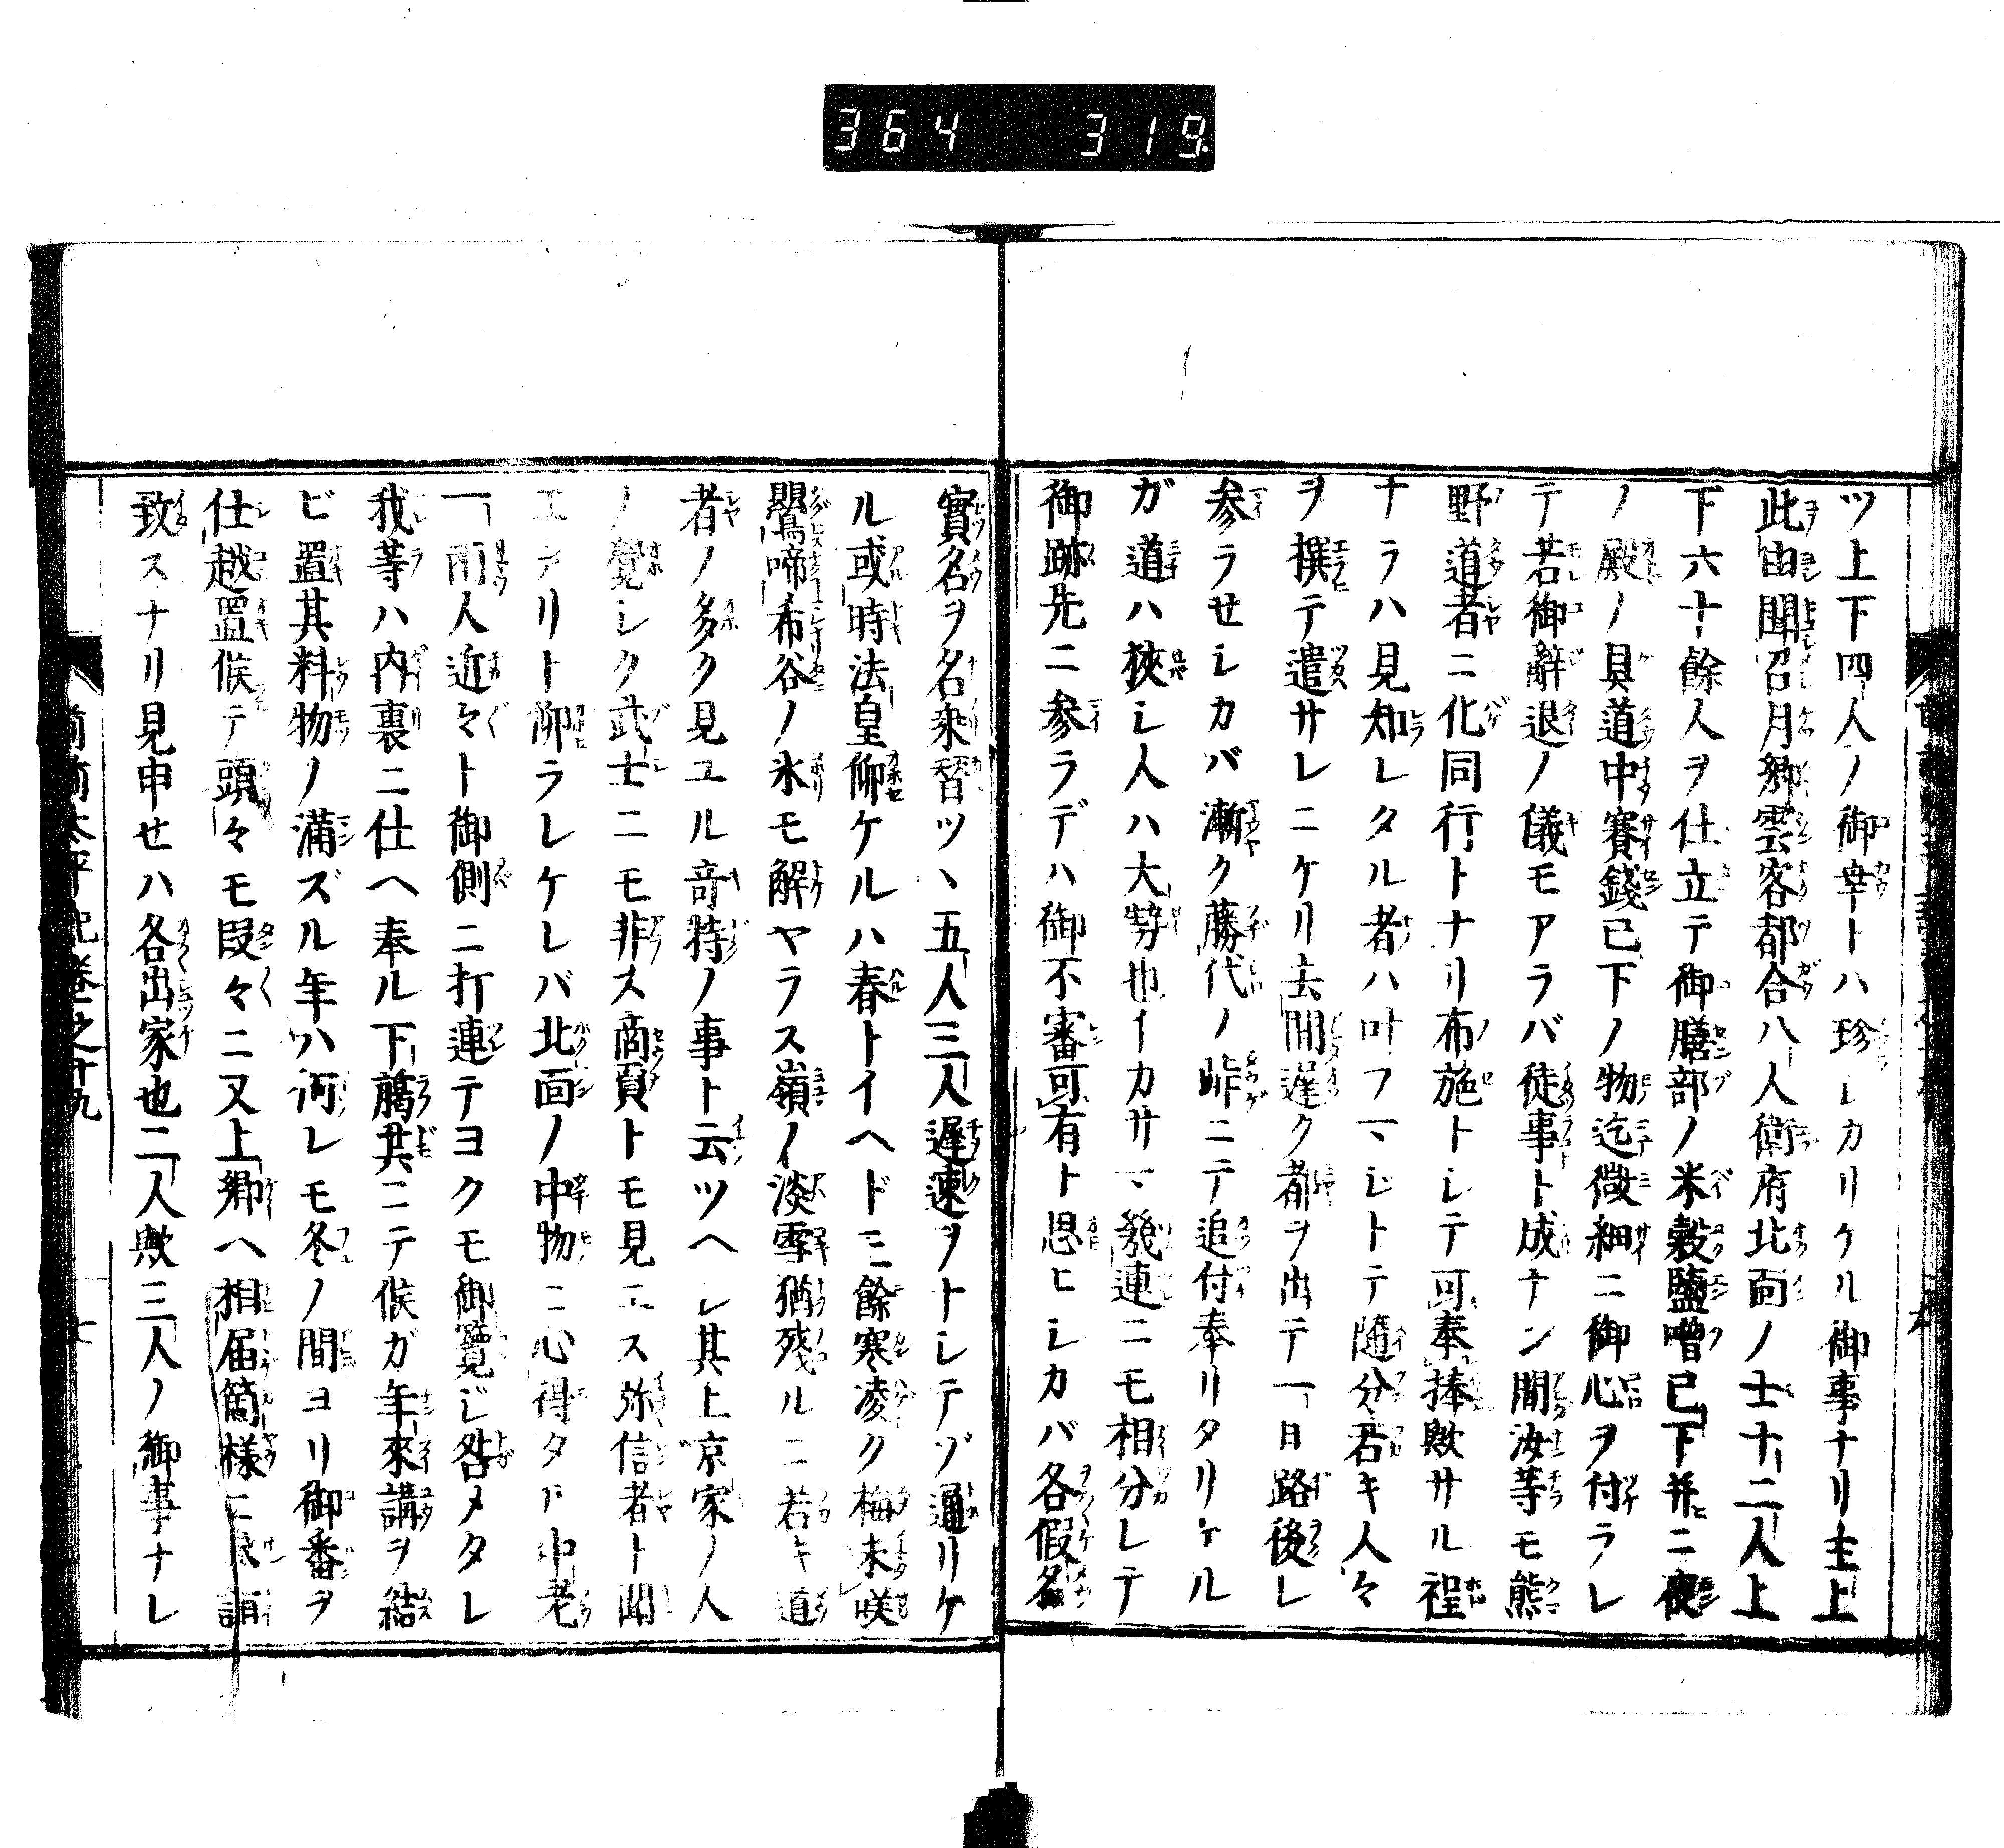 364 319
ツ上下四人ノ御幸トハ珍レカリケル御事ナリ主上
此由聞召月卿雲客都合八人衛府北面ノ士十二人上
下六十餘人ヲ仕立テ御膳部ノ米穀鹽噌已下并ニ夜
ノ殿ノ具道中賽錢已下ノ物迄微細ニ御心ヲ付ラレ
テ若御辭退ノ儀モアラバ徒事ト成ナン間汝等モ熊
野道者ニ化同行トナリ布施トレテ可奉捧歟サル程
ナラハ見知レタル者ハ叶フマレトテ隨分若キ人々
ヲ撰テ遣サレニケリ去間遅ク都ヲ出テ一日路後レ
参ラせレカバ漸ク藤代ノ ニテ追付奉リタリケル
ガ道ハ狹レ人ハ大勢也イカサマ幾連ニモ相分レテ
御跡先ニ参ラデハ御不審可有ト思ヒレカバ各假名
實名ヲ名乘替ツヽ五人三人遅速ヲトレテゾ通リケ
ル或時法皇仰ケルハ春トイヘドモ餘寒凌ク梅未咲
鸎啼希谷ノ氷モ解ヤラス嶺ノ淡雪猶殘ルニ若キ道
者ノ多ク見ユル竒特ノ事ト云ツヘレ其上京家ノ人
ノ覺レク武士ニモ非ス商買トモ見エス弥信者ト聞
エタリト仰ラレケレバ北面ノ中物ニ心得タル中老
一両人近々ト御側ニ打連テヨクモ御覽ジ咎メタレ
我等ハ内裏ニ仕ヘ奉ル下臈共ニテ候ガ年來講ヲ結
ビ置其料物ノ滿ズル年ハ何レモ冬ノ間ヨリ御番ヲ
仕越置候テ頭々モ段々ニ又上卿ヘ相届箇様ニ 詣
致スナリ見申せハ各出家也二人歟三人ノ御事ナレ
前前太平記卷之十九